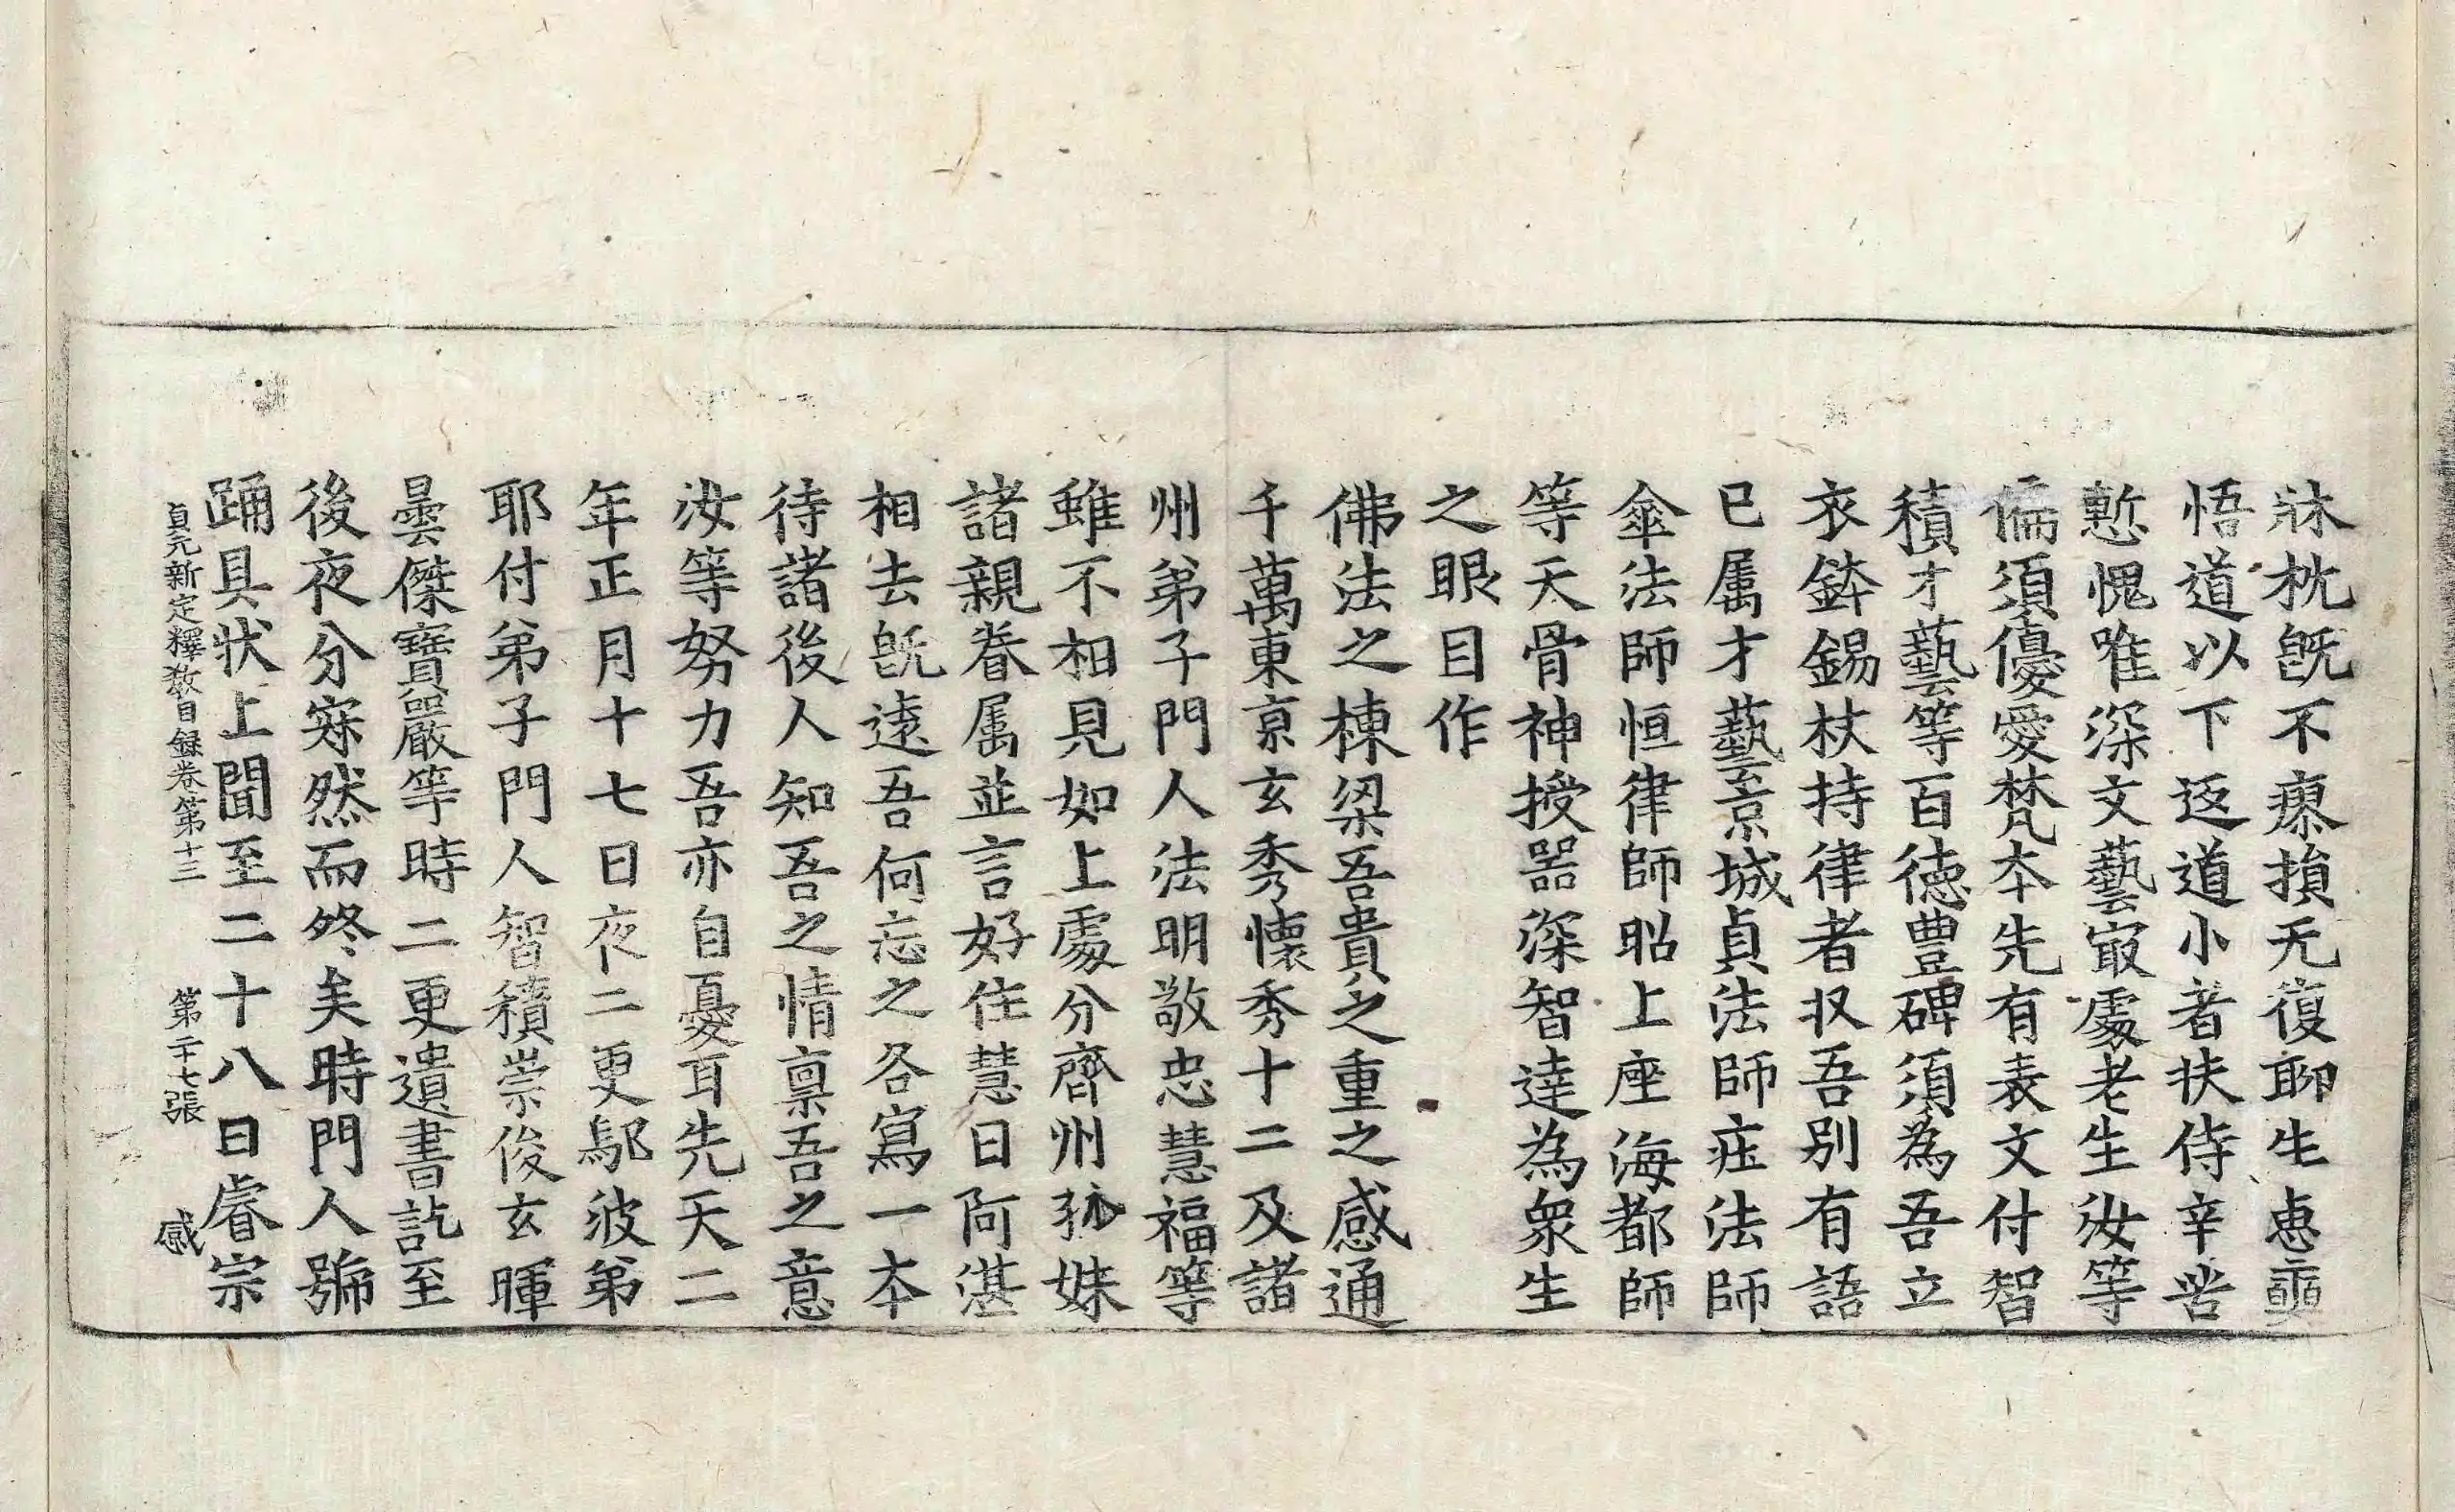 牀枕既不瘳損无復聊生惠
悟道以下返道小者扶侍辛苦
慙愧唯深文藝㝡處老生汝等
偏須優愛梵本先有表文付智
積才藝等百德豊碑須為吾立
衣鉢錫杖持律者収吾別有語
已属才藝京城貞法師庄法師
傘法師恒律師昭上座海都師
等天骨神授器深智達為衆生
之眼目作
佛法之棟梁吾貴之重之感通
千萬東京玄秀懷秀十二及諸
州弟子門人法明敬忠慧福等
雖不相見如上處分齊州孫妹
諸親眷属並言好住慧日阿湛
相去既遠吾何忘之各寫一本
待諸後人知吾之情禀吾之意
汝等努力吾亦自憂耳先天二
年正月十七日夜二更鄔波弟
耶付弟子門人智積崇俊玄暉
曇傑寶嚴等時二更遺書訖至
後夜分寂然而終矣時門人號
踊具狀上聞至二十八日睿宗
貞元新定釋教目録卷第十三 第二十七張 感